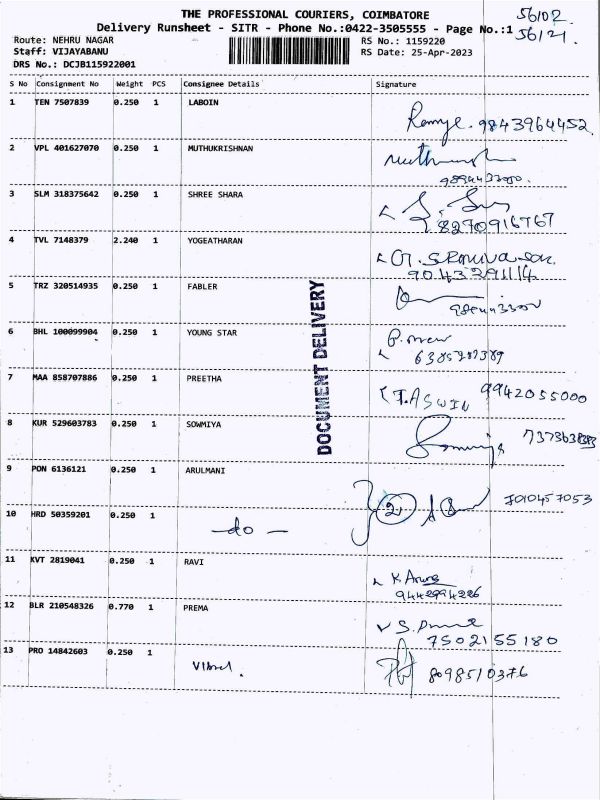 THE PROFESSIONAL COURIERS, COIMBATORE
56102
Delivery Runsheet - SITR - Phone No.:0422-3505555 - Page No.:1
56121
Route: NEHRU NAGAR RS No.: 1159220
Staff: VIJAYABANU RS Date: 25-Apr-2023
DRS No.: DCJB115922001
S No Consignment No Weight PCS Consignee Details Signature
1 TEN 7507839 0.250 1 LABOIN
Ramya. 9843964452
2 VPL 401627070 0.250 1 MUTHUKRISHNAN
3 SLM 318375642 0.250 1 SHREE SHARA
8270916767
4 TVL 7148379 2.240 1 YOGEATHARAN
G. Srinivasan
9043291114
5 TRZ 320514935 0.250 1 FABLER
6 BHL 100099904 0.250 1 YOUNG STAR
7 MAA 858707886 0.250 1 PREETHA
T. ASWIN 9942055000
8 KUR 529603783 0.250 1 SOWMIYA
9 PON 6136121 0.250 1 ARULMANI
2 7010457053
10 HRD 50359201 0.250 1
- do -
11 KVT 2819041 0.250 1 RAVI
K Arun
9442994226
12 BLR 210548326 0.770 1 PREMA
7502155180
13 PRO 14842603 0.250 1
8098510376
DOCUMENT DELIVERY